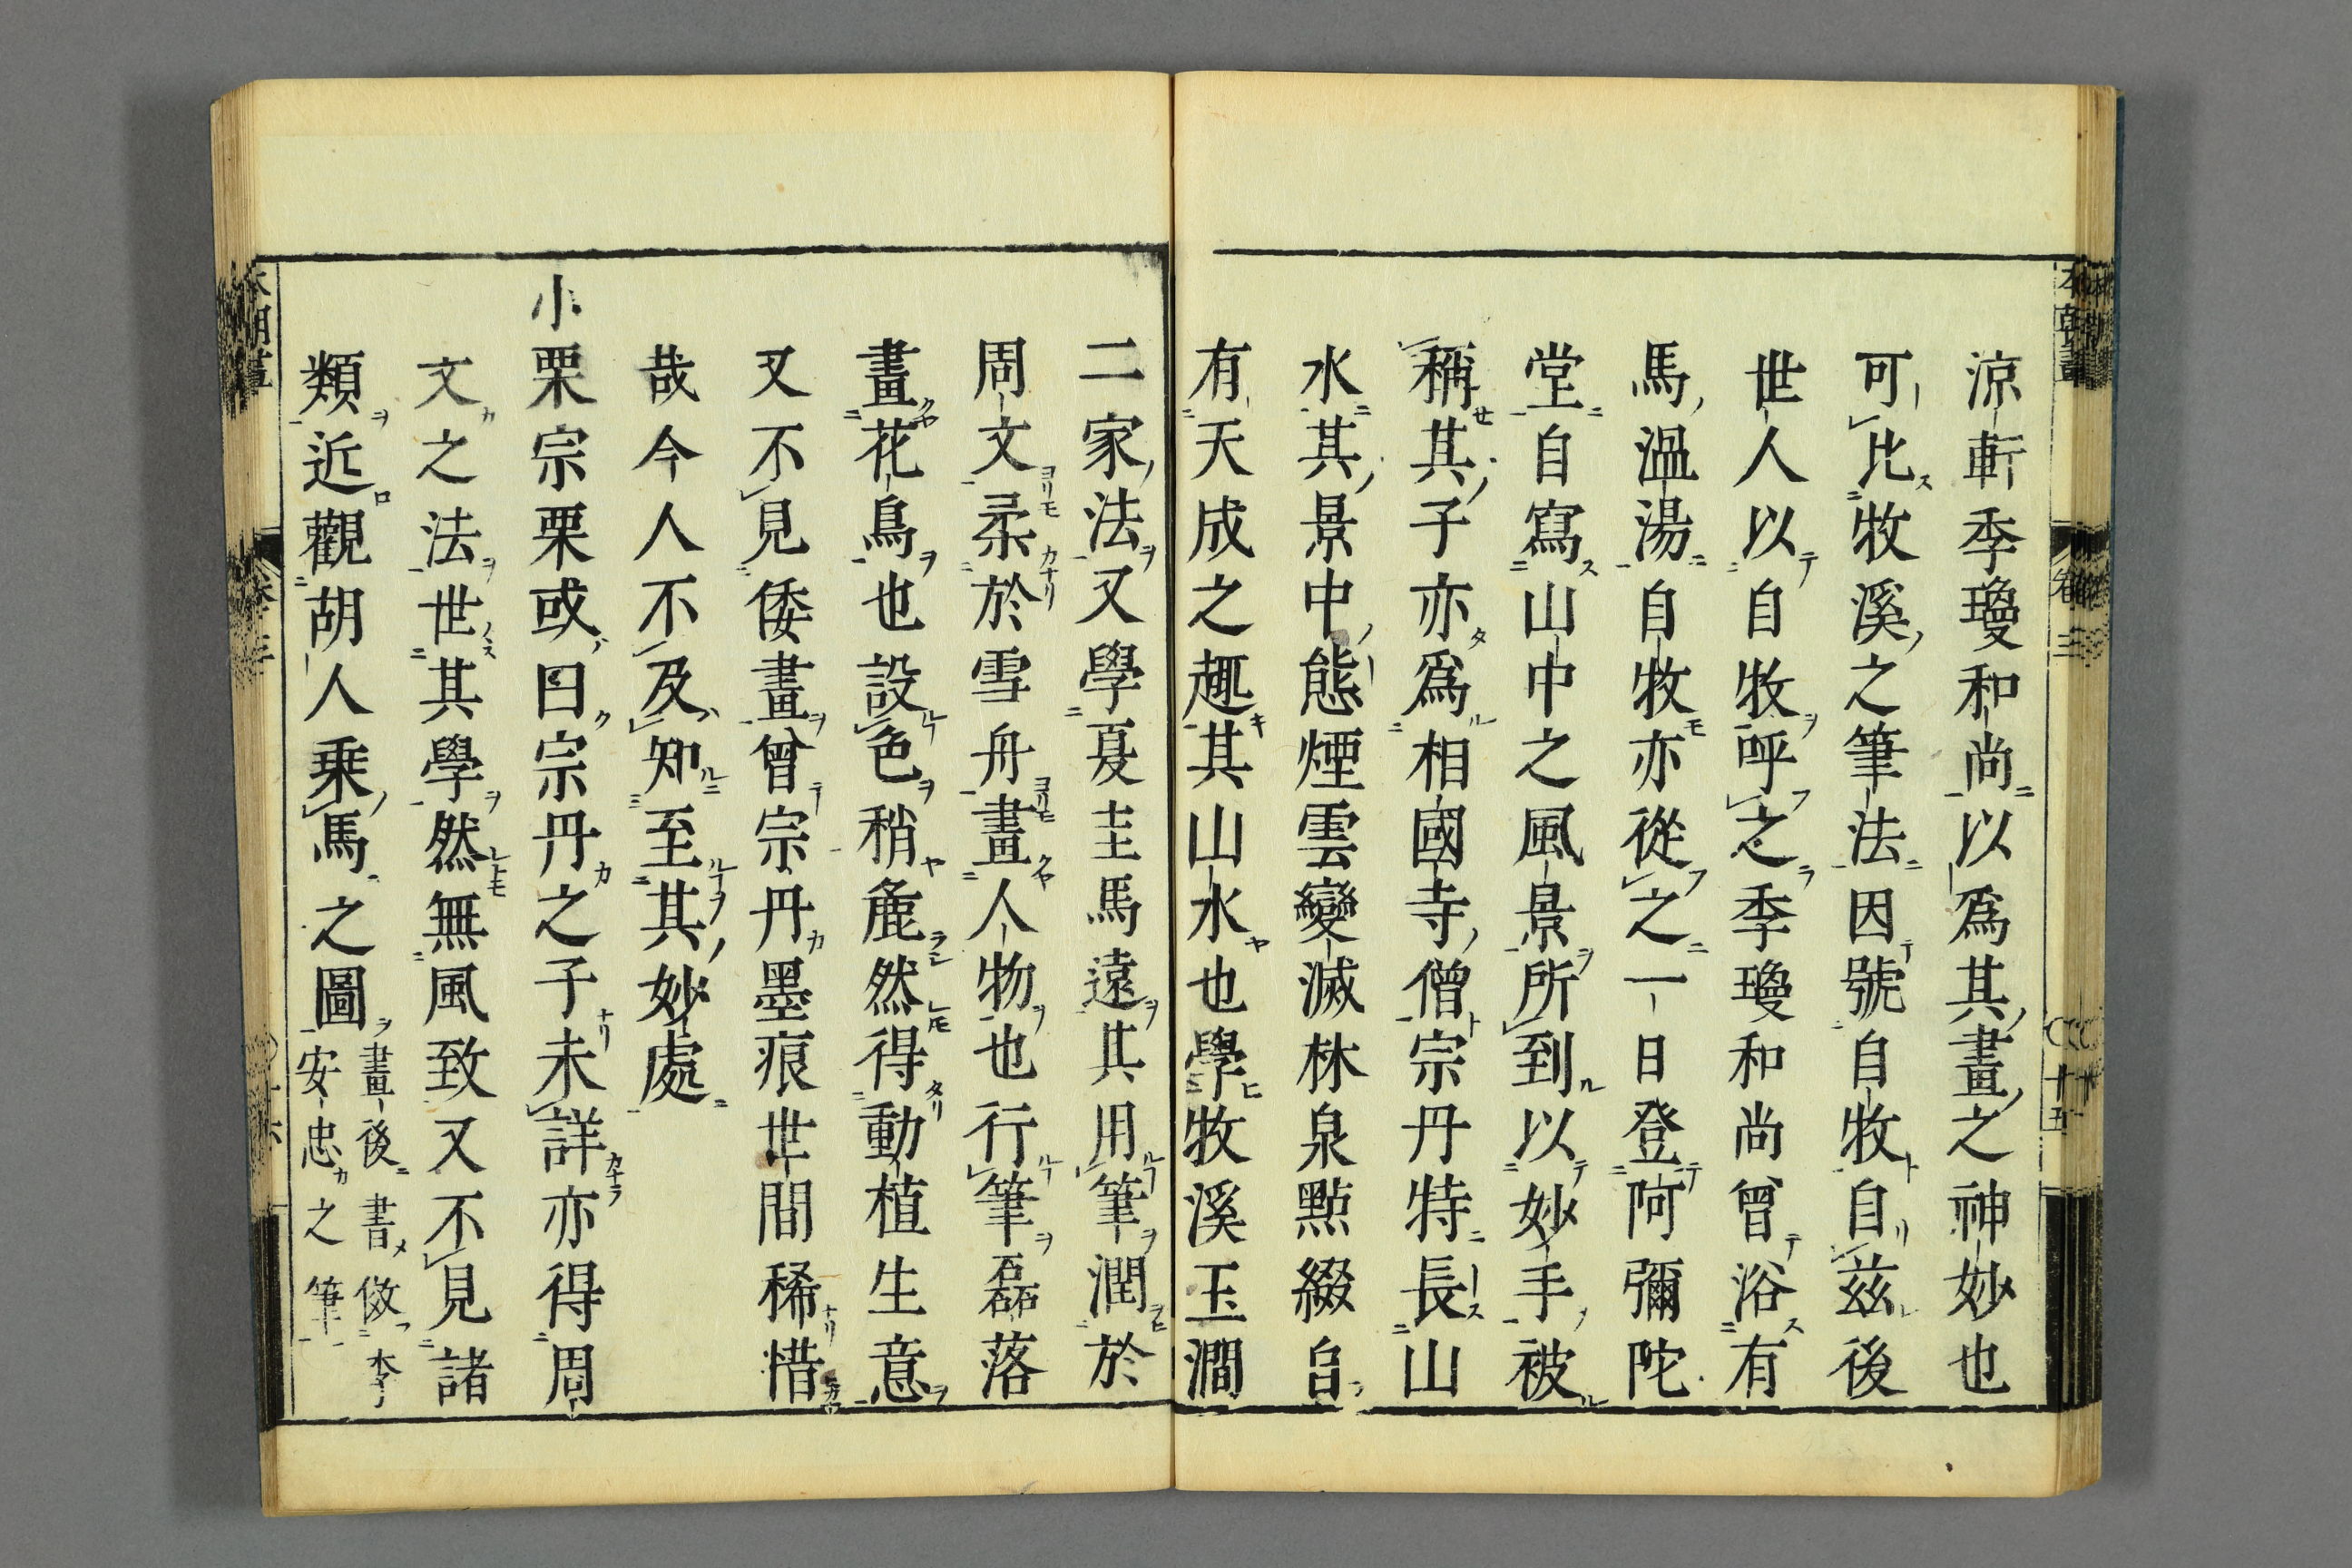 涼軒季瓊和尚以爲其畫之神妙也
可比牧溪之筆法因號自牧自茲後
世人以自牧呼之季瓊和尚曾浴有
馬溫湯自牧亦從之一日登阿彌陀
堂自寫山中之風景所到以妙手被
稱其子亦爲相國寺僧宗丹特長山
水其景中態煙雲變滅林泉點綴自
有天成之趣其山水也學牧溪玉澗
二家法又學夏圭馬遠其用筆潤於
周文柔於雪舟畫人物也行筆磊落
畫花鳥也設色稍麁然得動植生意
又不見倭畫曾宗丹墨痕世間稀惜
哉今人不及知至其妙處
小栗宗栗或曰宗丹之子未詳亦得周
文之法世其學然無風致又不見諸
類近觀胡人乗馬之圖畫後書倣李
安忠之筆